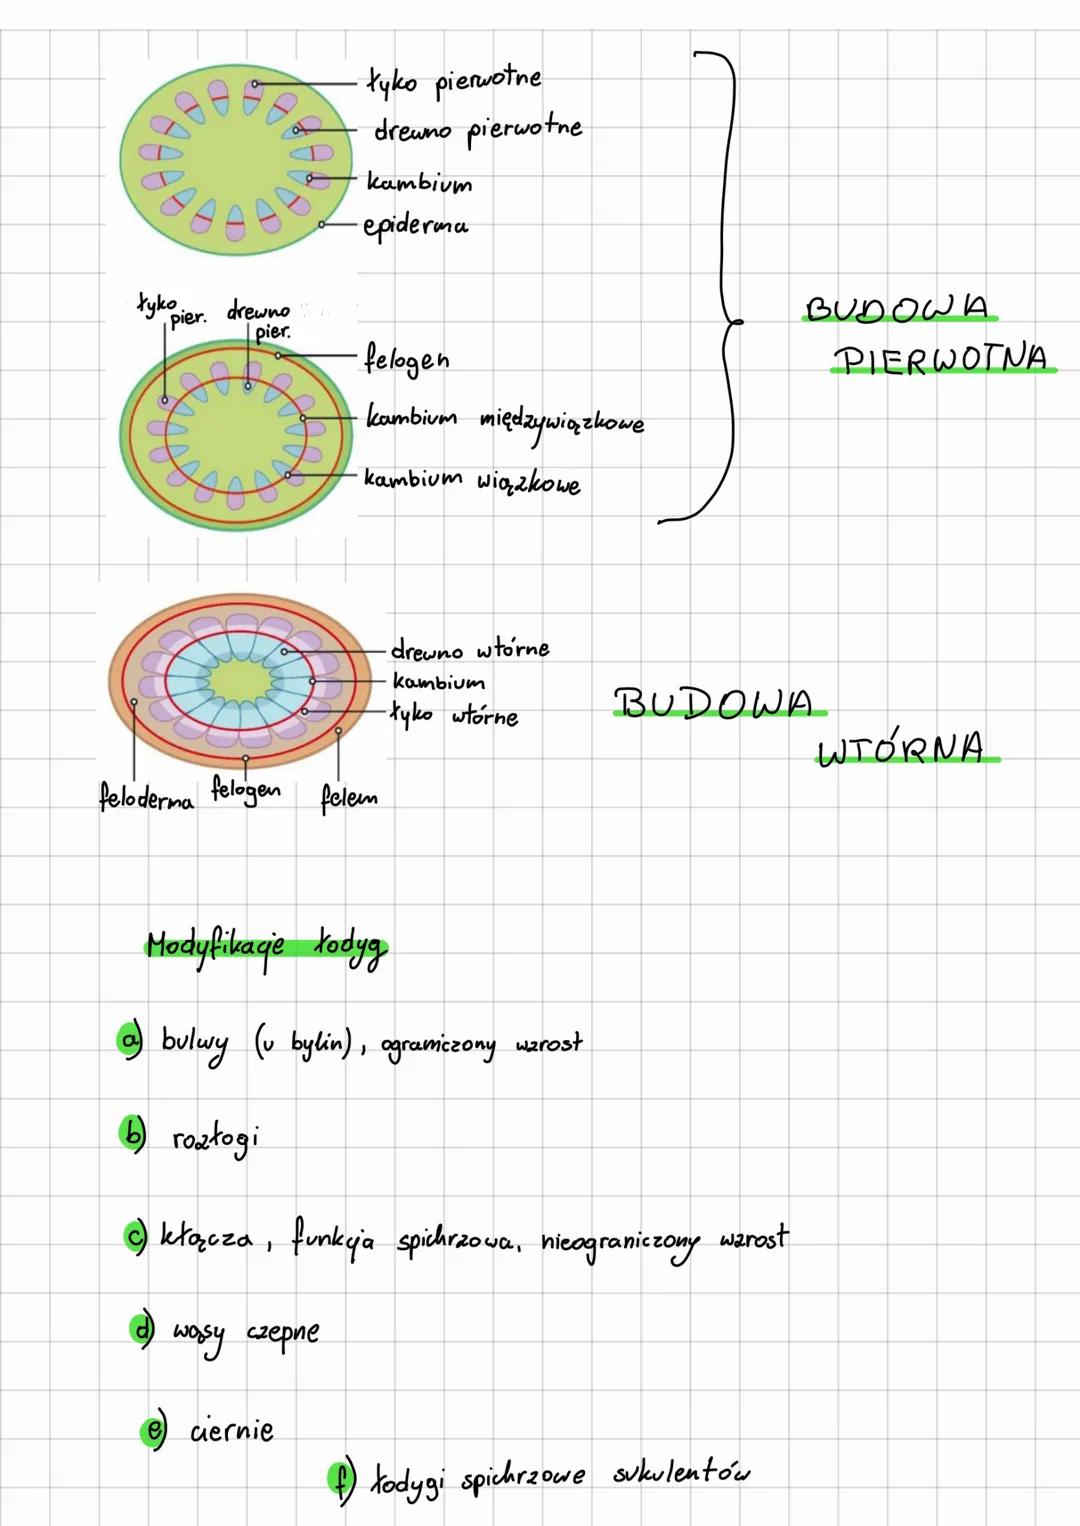 łyko pierwotne
drewno pierwotne
kambium
epiderma
łyko pier.
drewno pier.
felogen
kambium międzywiązkowe
kambium wiązkowe
BUDOWA
PIERWOTNA
drewno wtórne
kambium
łyko wtórne
feloderma
felogen
felem
BUDOWA
WTÓRNA
Modyfikacje łodyg
a) bulwy (u bylin), ograniczony wzrost
b) rozłogi
c) kłącza, funkcja spichrzowa, nieograniczony wzrost
d) wąsy czepne
e) ciernie
f) łodygi spichrzowe sukulentów